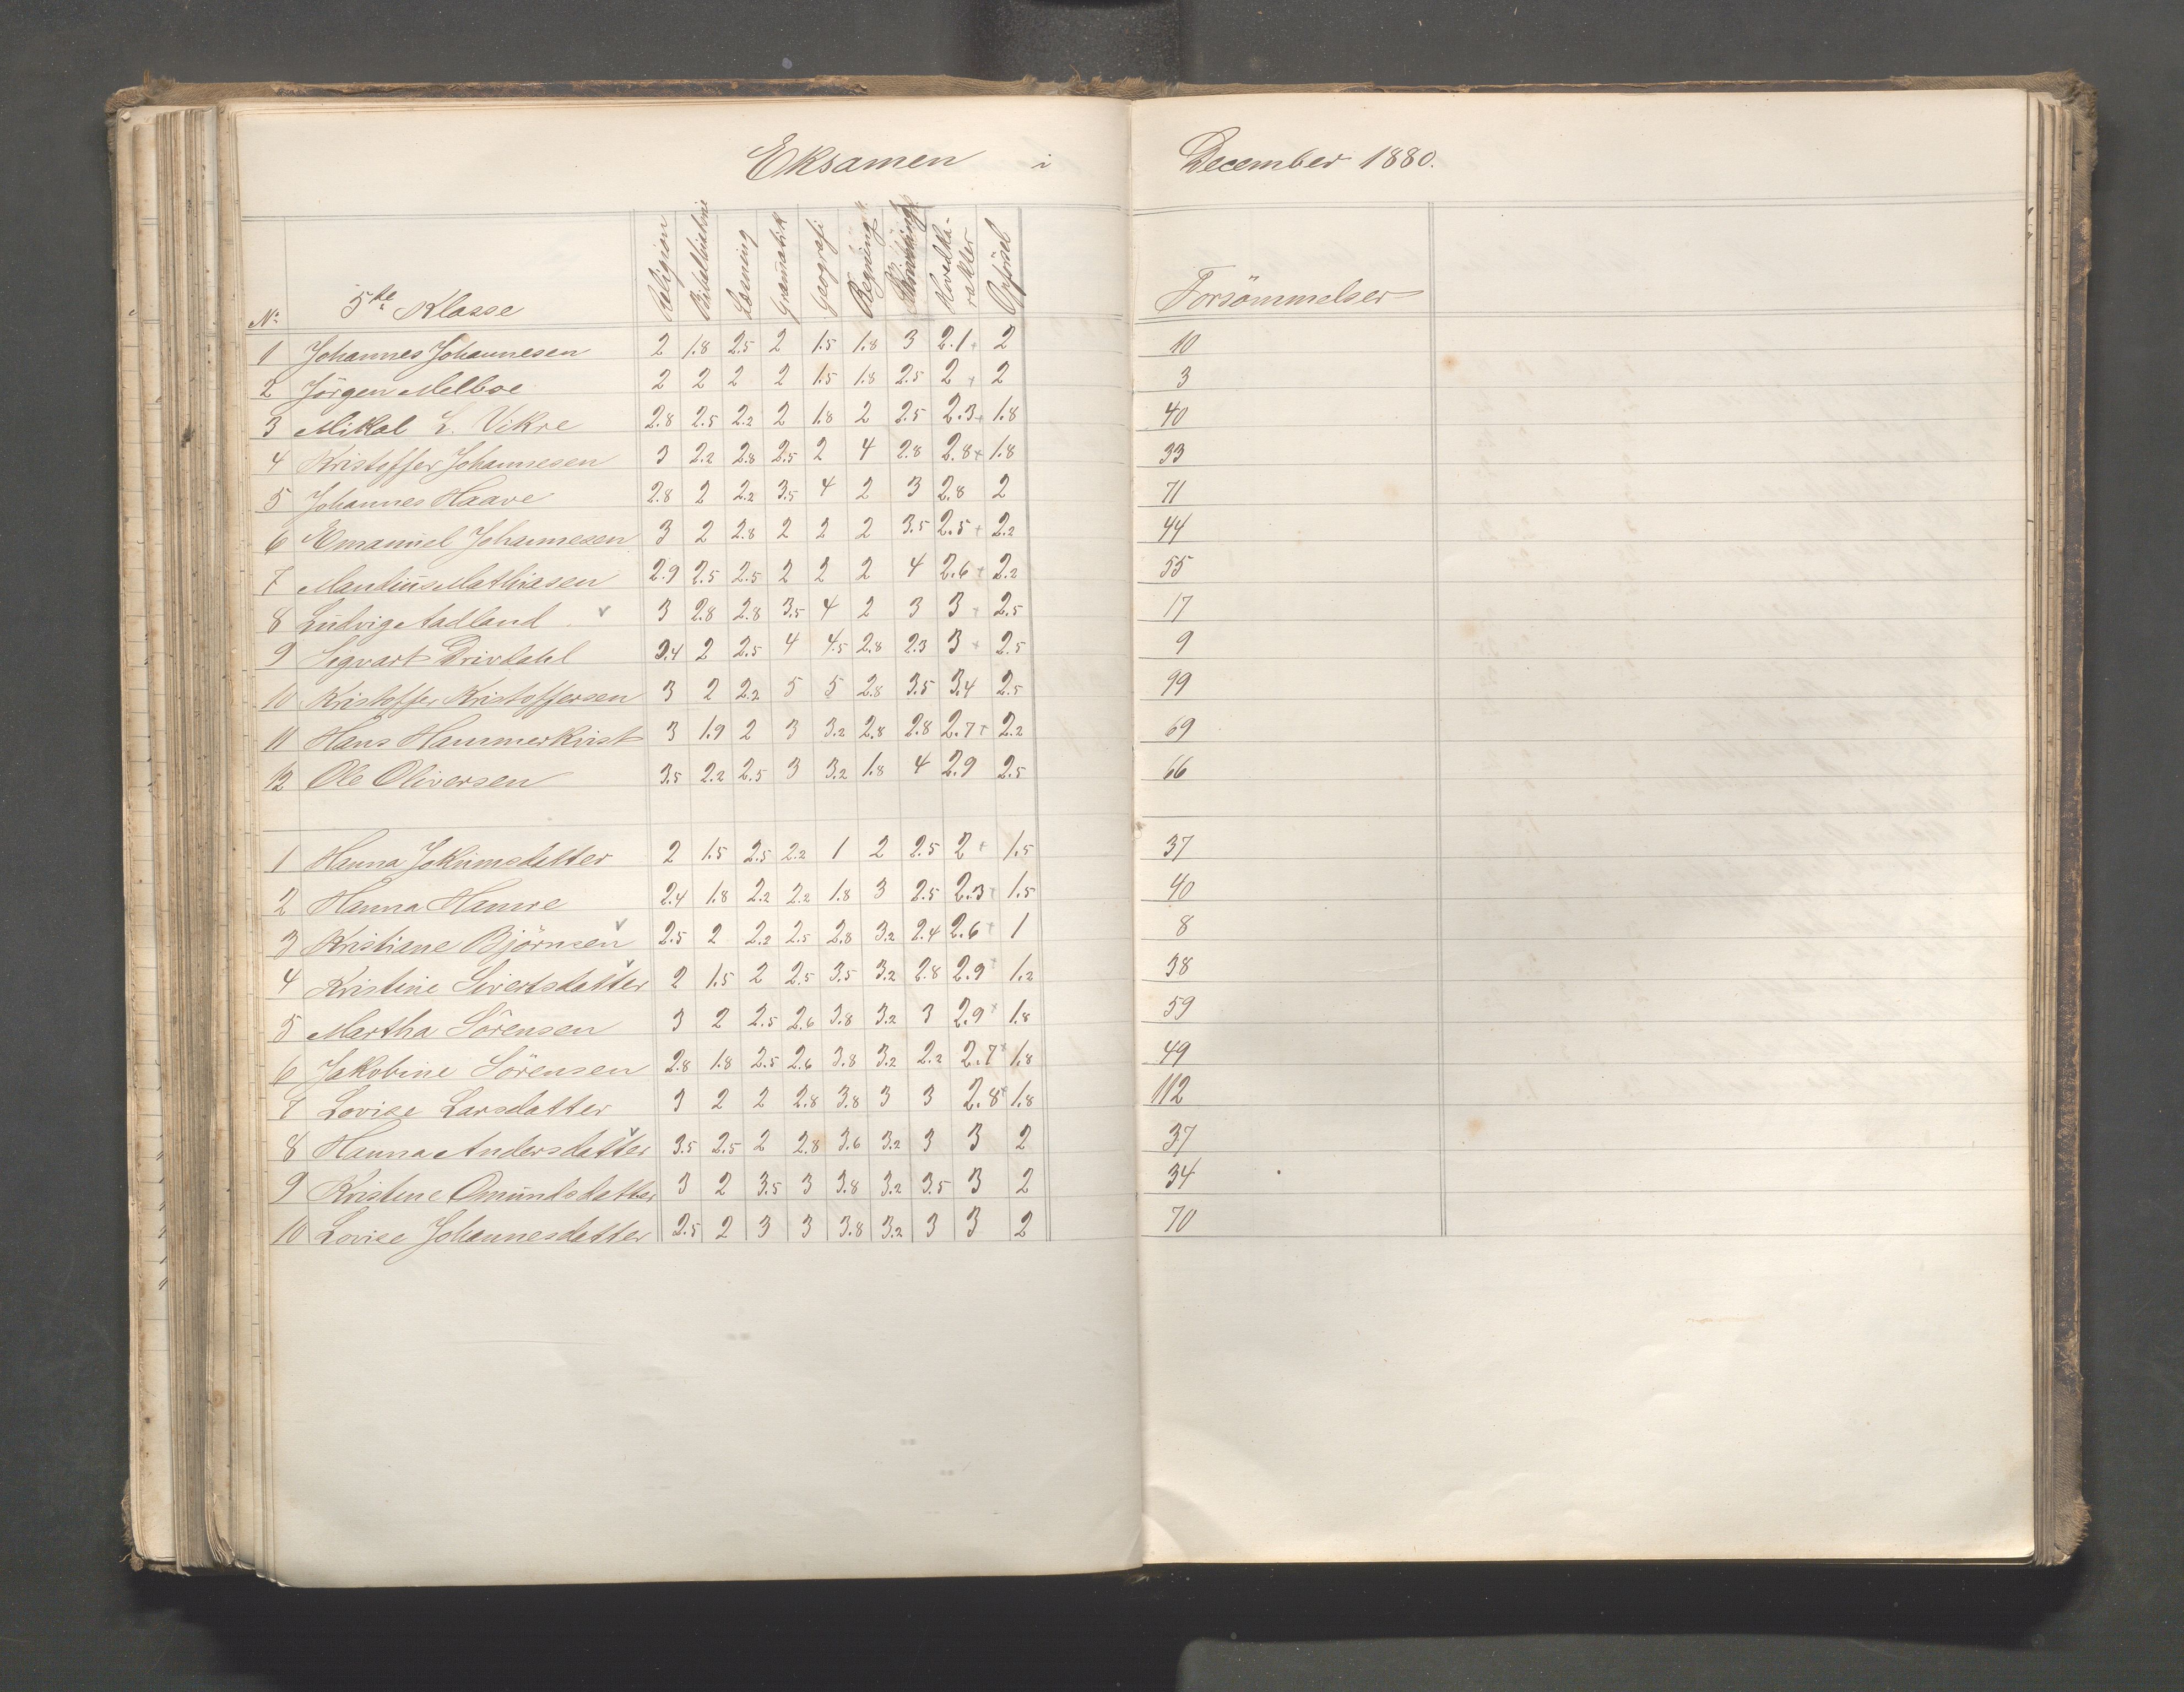 Eksamen i December 1880.
No 5te Klasse Religion Bibelhistorie Læsning Gramatik Geografi Regning Hovedkarakter Opförsel Forsömmelser
1 Johannes Johannesen 2 1.8 2.5 2 1.5 1.8 3 2.1+ 2 10
2 Jörgen Melboe 2 2 2 2 1.5 1.8 2.5 2+ 2 3
3 Mikal L. Vikre 2.8 2.5 2.2 2 1.8 2 2.5 2.3+ 1.8 40
4 Kristoffer Johannesen 3 2.2 2.8 2.5 2 4 2.8 2.8+ 1.8 33
5 Johannes Haave 2.8 2 2.2 3.5 4 2 3 2.8 2 71
6 Emanuel Johannesen 3 2 2.8 2 2 2 3.5 2.5+ 2.2 44
7 Mandius Mathiasen 2.9 2.5 2.5 2 2 2 4 2.6+ 2.2 55
8 Ludvig Aadland v 3 2.8 2.8 3.5 4 2 3 3+ 2.5 17
9 Sigvart Drivdahl 3.4 2 2.5 4 4.5 2.8 2.3 3+ 2.5 9
10 Kristoffer Kristoffersen 3 2 2.2 5 5 2.8 3.5 3.4 2.5 99
11 Hans Hammerkvist 3 1.9 2 3 3.2 2.8 2.8 2.7+ 2.2 69
12 Ole Oliversen 3.5 2.2 2.5 3 3.2 1.8 4 2.9 2.5 66
1 Hanna Jokumsdatter 2 1.5 2.5 2.2 1 2 2.5 2+ 1.5 37
2 Hanna Hamre 2.4 1.8 2.2 2.2 1.8 3 2.5 2.3+ 1.5 40
3 Kristiane Björnsen v 2.5 2 2.2 2.5 2.8 3.2 2.4 2.6+ 1 8
4 Kristine Sivertsdatter v 2 1.5 2 2.5 3.5 3.2 2.8 2.9+ 1.2 38
5 Martha Sörensen 3 2 2.5 2.6 3.8 3.2 3 2.9+ 1.8 59
6 Jakobine Sörensen 2.8 1.8 2.5 2.6 3.8 3.2 2.2 2.7+ 1.8 49
7 Lovise Larsdatter 3 2 2 2.8 3.8 3 3 2.8+ 1.8 112
8 Hanna Andersdatter v 3.5 2.5 2 2.8 3.6 3.2 3 3 2 37
9 Kristine Omundsdatter 3 2 3.5 3 3.8 3.2 3.5 3 2 34
10 Lovise Johannesdatter 2.5 2 3 3 3.8 3.2 3 3 2 70